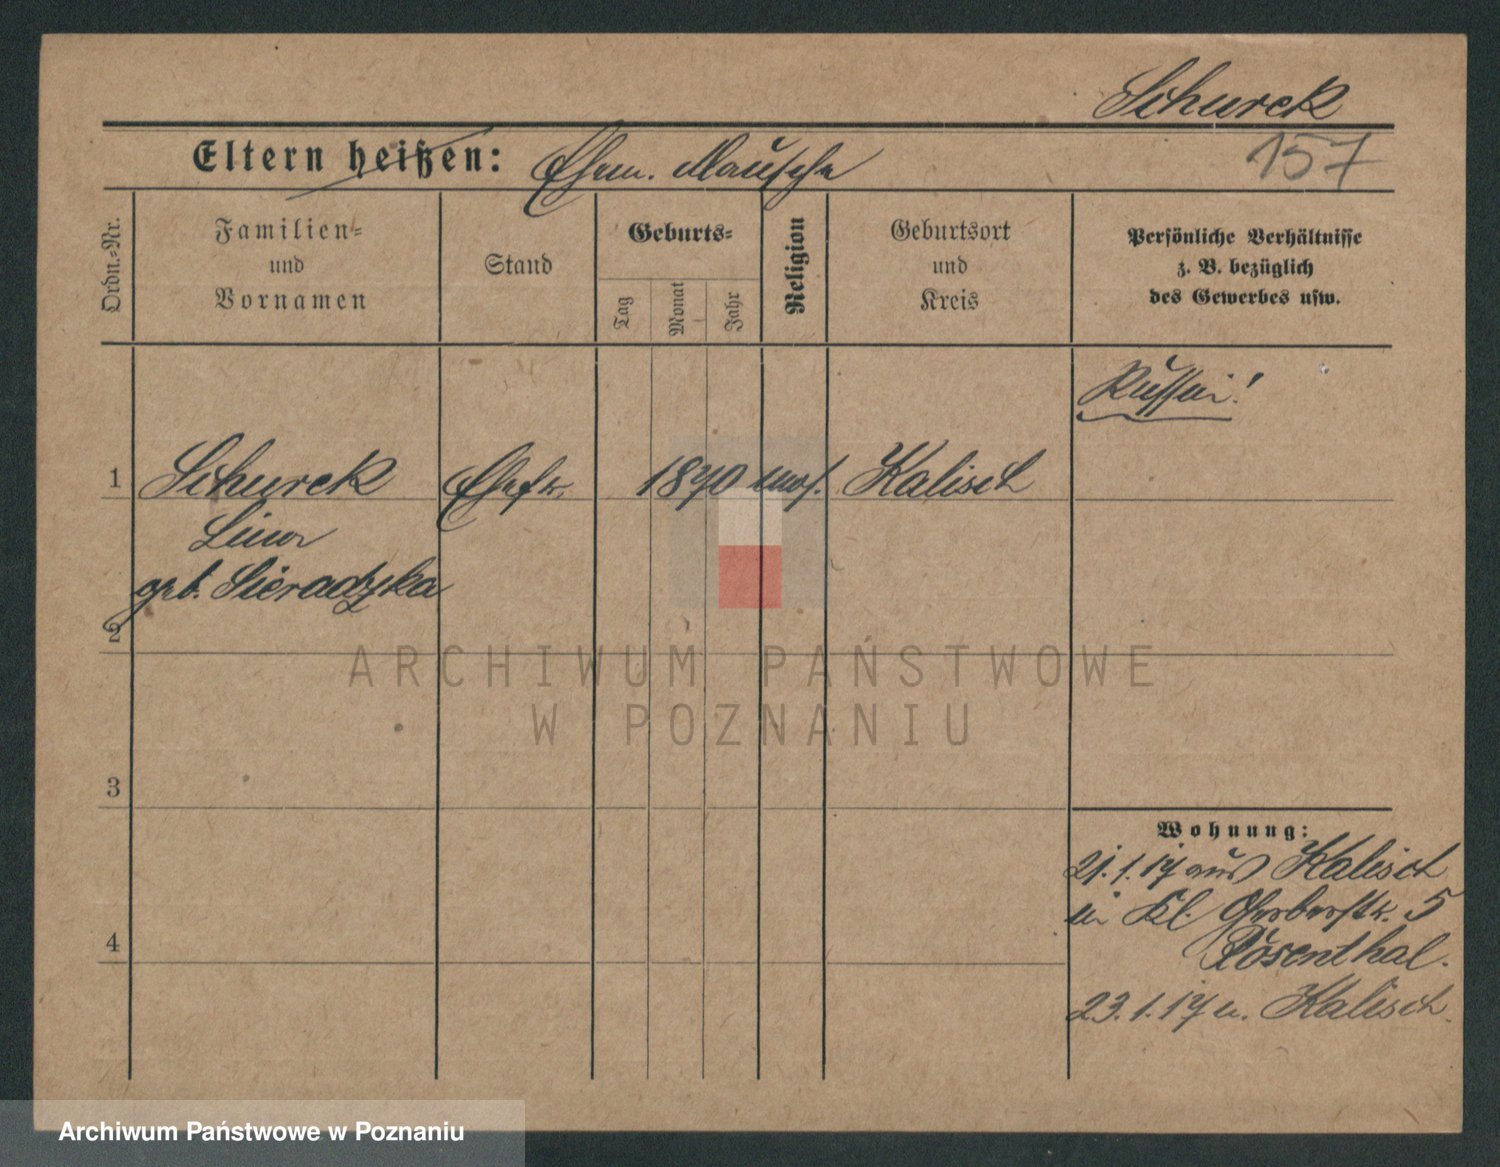 Schurek
157
Eltern heißen: Ehem. Mausche
Ordn.-Nr.
Familien-
und
Vornamen
Stand
Geburts-
Tag
Monat
Jahr
Religion
Geburtsort
und
Kreis
Persönliche Verhältnisse
z. B. bezüglich
des Gewerbes usw.
Russin!
1 Schurek Ehefr. 1870 mos. Kalisch
geb. Sieradzka
2
3
4
Wohnung:
21.1.17 aus Kalisch
in Kl. Gerberstr. 5
Rosenthal.
23.1.17 n. Kalisch.
ARCHIWUM PAŃSTWOWE
W POZNANIU
Archiwum Państwowe w Poznaniu